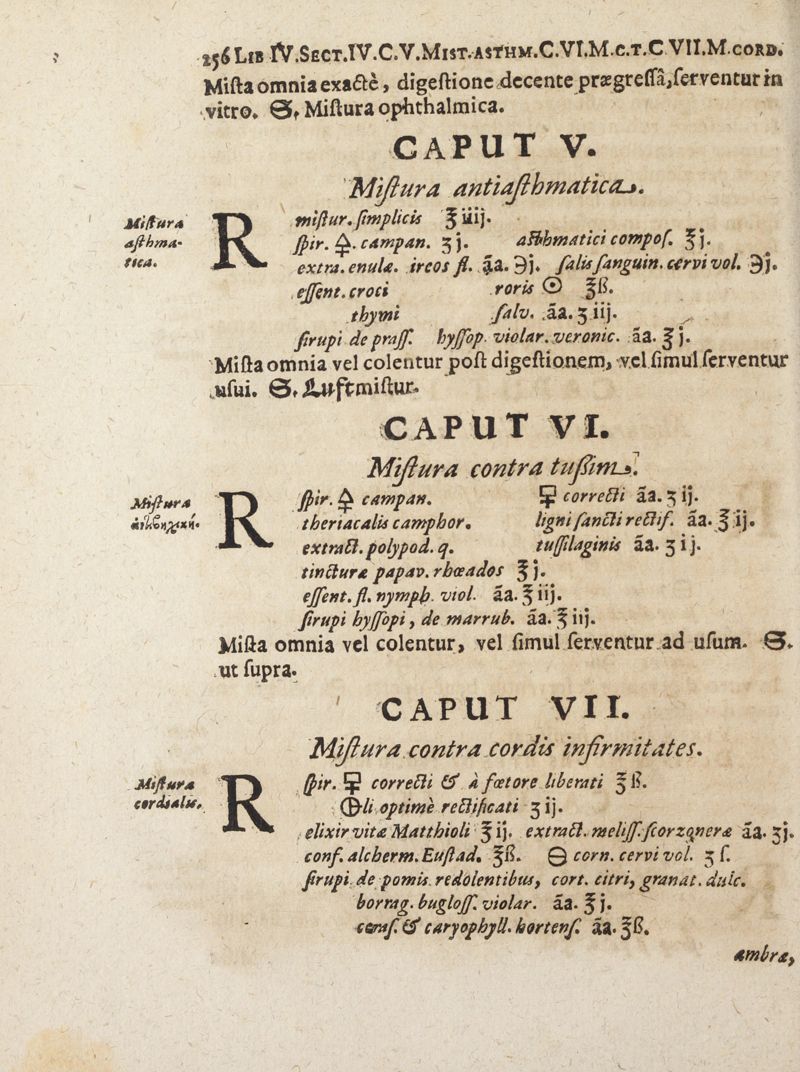 256 LIB IV. SECT. IV. C. V. MIST. ASTHM. C. VI. M. C. T. C VII. M. CORD.
Miſta omnia exactè, digeſtione decente prægreſſâ, ſerventur in
vitro. S. Miſtura ophthalmica.
CAPUT V.
Miſtura antiaſthmatica.
Miſtura
aſthma-
tica.
R miſtur. ſimplicis ℥ iiij.
ſpir. 🜍. campan. ʒ j. aſthmatici compoſ. ℥ j.
extra. enulæ. ireos fl. āa. ℈j. ſalis ſanguin. cervi vol. ℈j.
eſſent. croci roris ☉ ℥ß.
thymi ſalv. āa. ʒ iij.
ſirupi de praſſ. hyſſop. violar. veronic. āa. ℥ j.
Miſta omnia vel colentur poſt digeſtionem, vel ſimul ſerventur
uſui. S. Luftmiſtur.
CAPUT VI.
Miſtura contra tußim.
Miſtura
R ſpir. 🜍 campan. correcti āa. ʒ ij.
theriacalis camphor. ligni ſancti rectif. āa. ℥ ij.
extract. polypod. q. tuſſilaginis āa. ʒ i j.
tincturæ papav. rhœados ℥ j.
eſſent. fl. nymph. viol. āa. ℥ iij.
ſirupi hyſſopi, de marrub. āa. ℥ iij.
Miſta omnia vel colentur, vel ſimul ſerventur ad uſum. S.
ut ſupra.
CAPUT VII.
Miſtura contra cordis infirmitates.
Miſtura
cordialis.
R ſpir. correcti & à fœtore liberati ℥ ß.
🜕li optimè rectificati ʒ ij.
elixir vitæ Matthioli ℥ ij. extract. meliſſ. ſcorzoneræ āa. ʒj.
conf. alcherm. Euſtad. ℥ß. 🜔 corn. cervi vol. ʒ ſ.
ſirupi de pomis redolentibus, cort. citri, granat. dulc.
borrag. bugloſſ. violar. āa. ℥ j.
ceraſ. & caryophyll. hortenſ. āa. ℥ß.
ambræ,